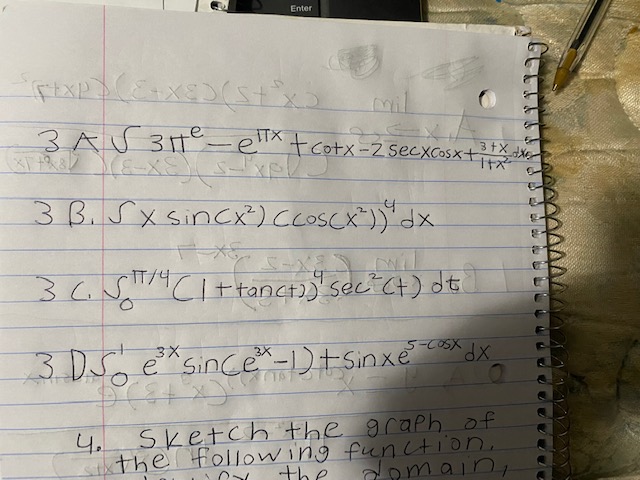 Enter
3 A ∫ 3π^e - e^πx + cotx - 2 secxcosx + (3+x)/(1+x²) dx
3 B. ∫ x sin(x²) (cos(x²))^4 dx
3 C. ∫_0^π/4 (1 + tan(t))^4 sec²(t) dt
3 D ∫_0^1 e^3x sin(e^3x - 1) + sinxe^5-cosx dx
4. Sketch the graph of
the following function.
the domain,